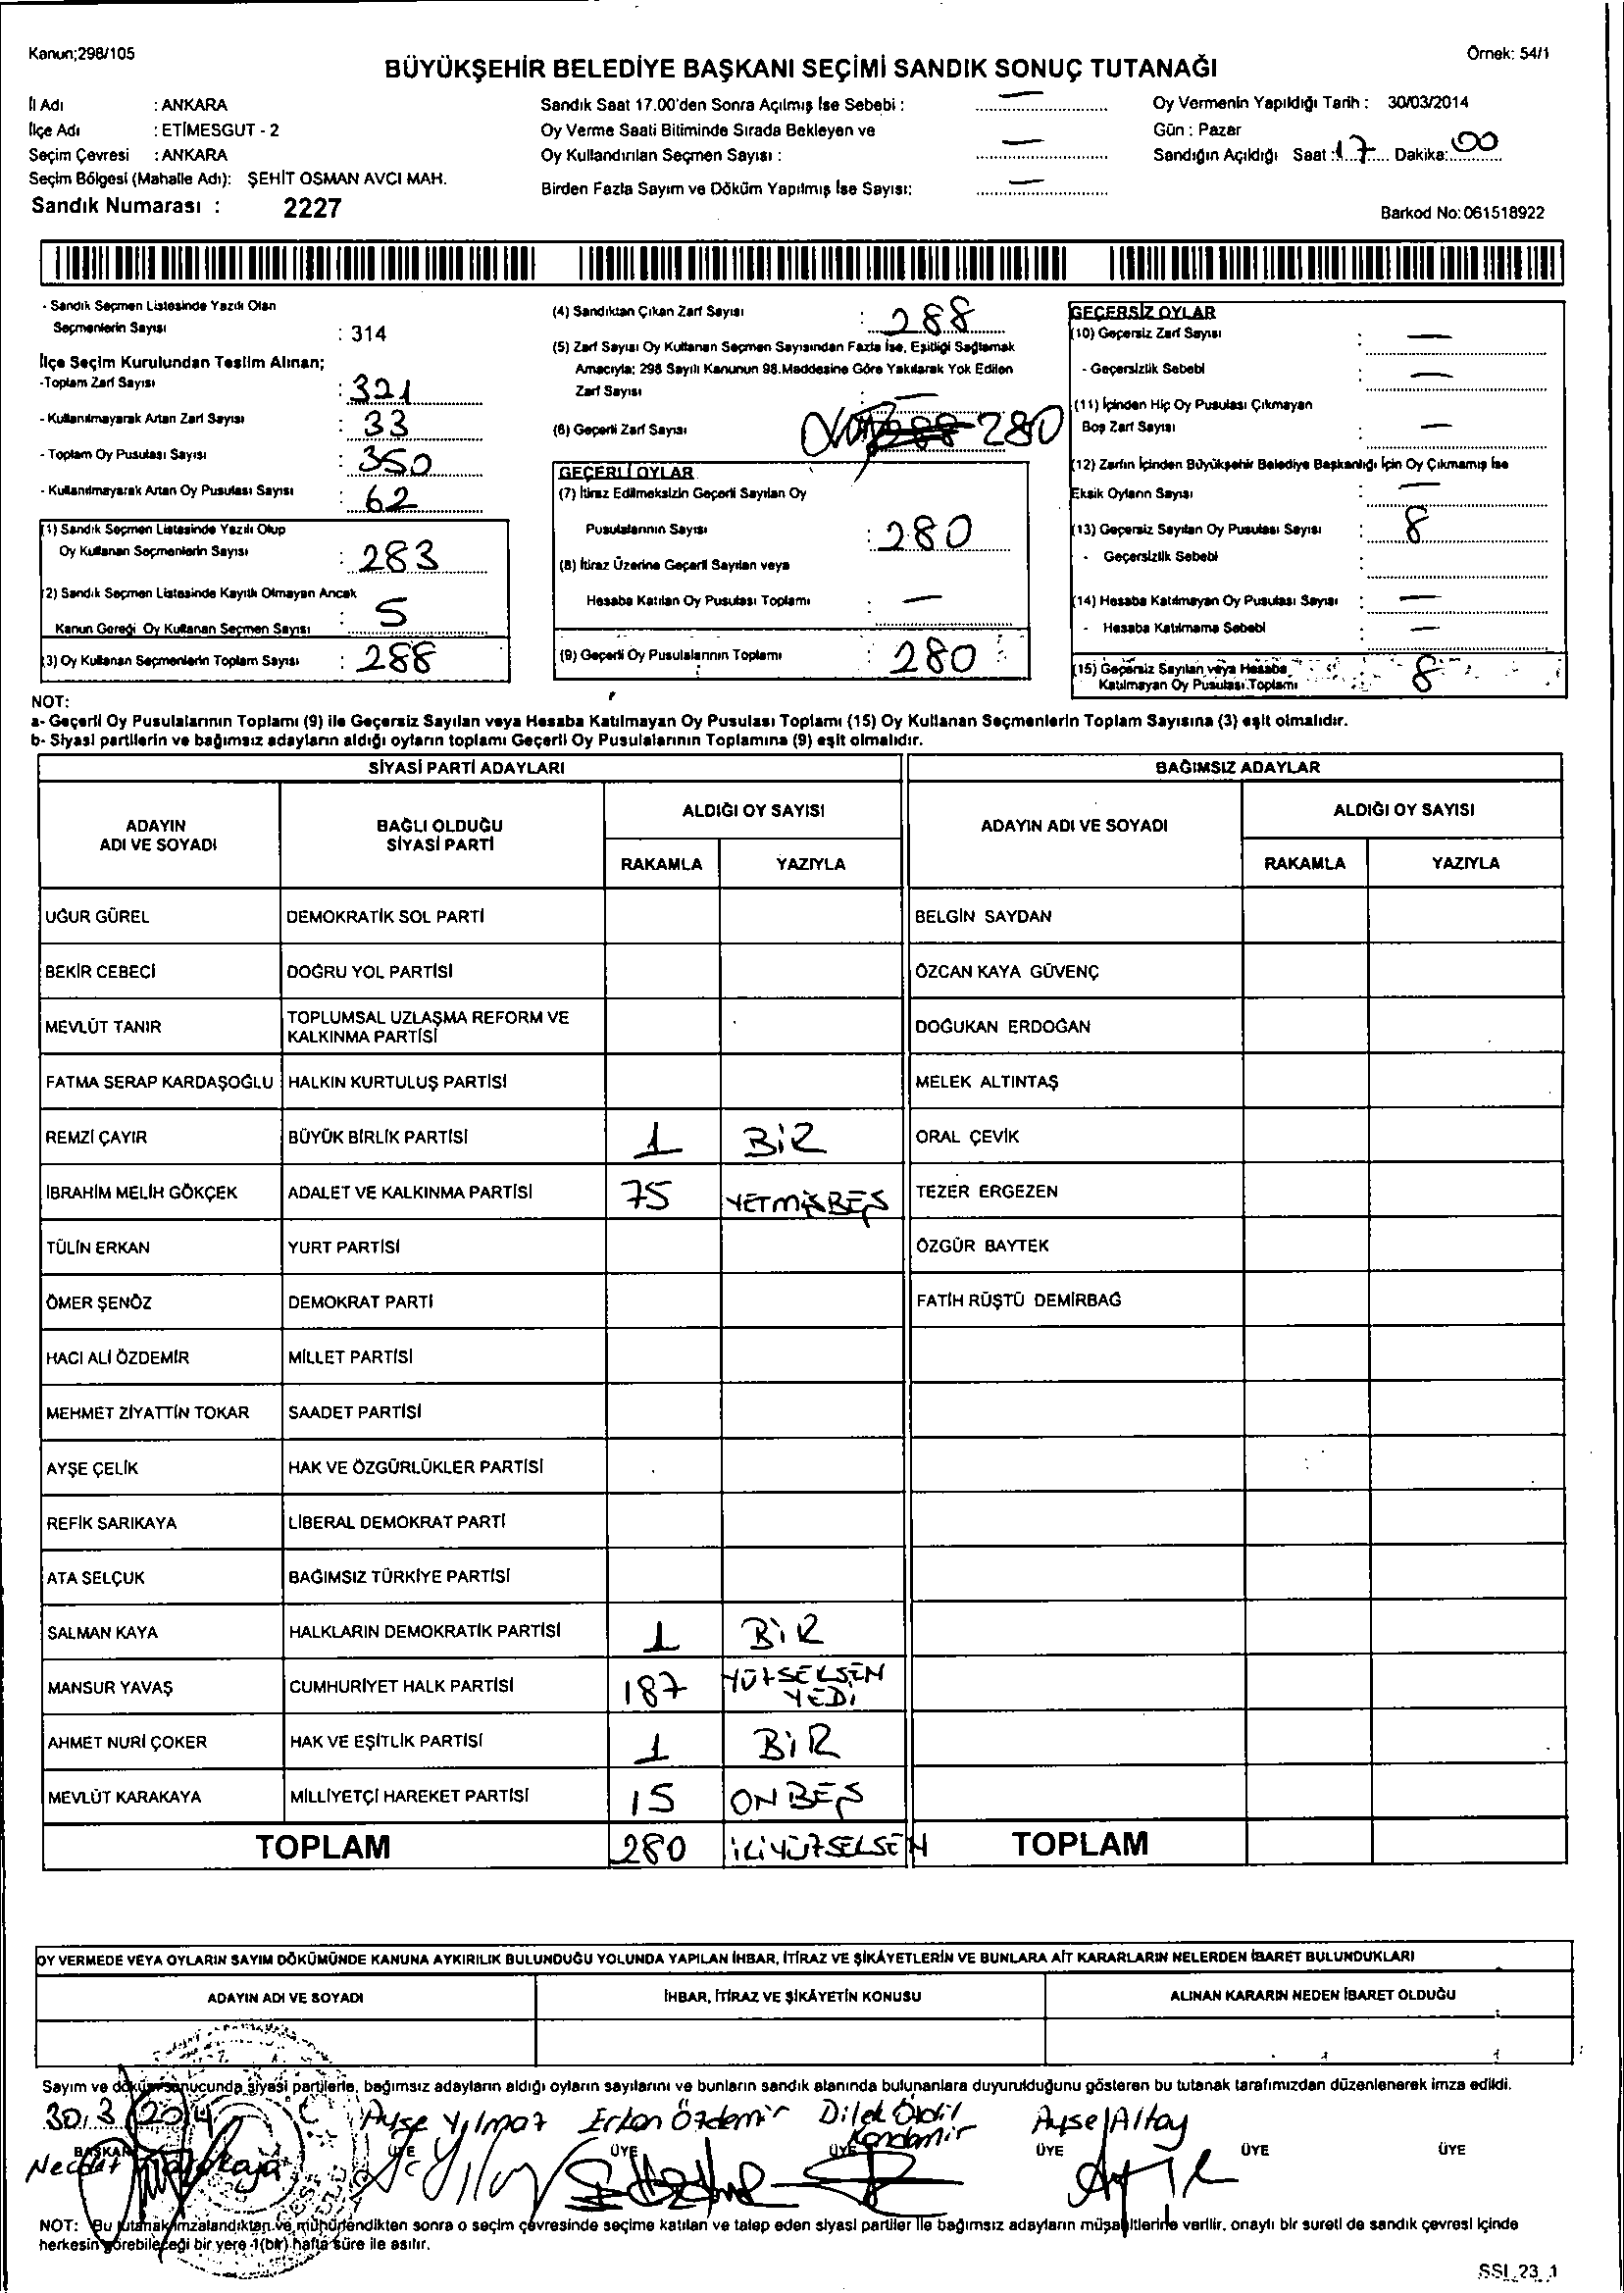 Kanun;298/105
Örnek: 54/1
BÜYÜKŞEHİR BELEDİYE BAŞKANI SEÇİMİ SANDIK SONUÇ TUTANAĞI
İl Adı : ANKARA
İlçe Adı : ETİMESGUT - 2
Seçim Çevresi : ANKARA
Seçim Bölgesi (Mahalle Adı): ŞEHİT OSMAN AVCI MAH.
Sandık Numarası : 2227
Sandık Saat 17.00'den Sonra Açılmış İse Sebebi : —
Oy Verme Saati Bitiminde Sırada Bekleyen ve
Oy Kullandırılan Seçmen Sayısı : —
Birden Fazla Sayım ve Döküm Yapılmış İse Sayısı: —
Oy Vermenin Yapıldığı Tarih : 30/03/2014
Gün : Pazar
Sandığın Açıldığı Saat : 17 Dakika: 00
Barkod No: 061518922
- Sandık Seçmen Listesinde Yazılı Olan
Seçmenlerin Sayısı : 314
İlçe Seçim Kurulundan Teslim Alınan;
-Toplam Zarf Sayısı : 321
- Kullanılmayarak Artan Zarf Sayısı : 33
- Toplam Oy Pusulası Sayısı : 350
- Kullanılmayarak Artan Oy Pusulası Sayısı : 62
(1) Sandık Seçmen Listesinde Yazılı Olup
Oy Kullanan Seçmenlerin Sayısı : 283
(2) Sandık Seçmen Listesinde Kayıtlı Olmayan Ancak
Kanun Gereği Oy Kullanan Seçmen Sayısı : 5
(3) Oy Kullanan Seçmenlerin Toplam Sayısı : 288
(4) Sandıktan Çıkan Zarf Sayısı : 288
(5) Zarf Sayısı Oy Kullanan Seçmen Sayısından Fazla İse, Eşitliği Sağlamak
Amacıyla; 298 Sayılı Kanunun 98.Maddesine Göre Yakılarak Yok Edilen
Zarf Sayısı : —
(6) Geçerli Zarf Sayısı 280
GEÇERLİ OYLAR
(7) İtiraz Edilmeksizin Geçerli Sayılan Oy
Pusulalarının Sayısı : 280
(8) İtiraz Üzerine Geçerli Sayılan veya
Hesaba Katılan Oy Pusulası Toplamı : —
(9) Geçerli Oy Pusulalarının Toplamı : 280
GEÇERSİZ OYLAR
(10) Geçersiz Zarf Sayısı : —
- Geçersizlik Sebebi : —
(11) İçinden Hiç Oy Pusulası Çıkmayan
Boş Zarf Sayısı : —
(12) Zarfın İçinden Büyükşehir Belediye Başkanlığı İçin Oy Çıkmamış İse
Eksik Oyların Sayısı : —
(13) Geçersiz Sayılan Oy Pusulası Sayısı : 8
- Geçersizlik Sebebi :
(14) Hesaba Katılmayan Oy Pusulası Sayısı : —
- Hesaba Katılmama Sebebi : —
(15) Geçersiz Sayılan veya Hesaba
Katılmayan Oy Pusulası Toplamı : 8
NOT:
a- Geçerli Oy Pusulalarının Toplamı (9) ile Geçersiz Sayılan veya Hesaba Katılmayan Oy Pusulası Toplamı (15) Oy Kullanan Seçmenlerin Toplam Sayısına (3) eşit olmalıdır.
b- Siyasi partilerin ve bağımsız adayların aldığı oyların toplamı Geçerli Oy Pusulalarının Toplamına (9) eşit olmalıdır.
SİYASİ PARTİ ADAYLARI BAĞIMSIZ ADAYLAR
ADAYIN ADI VE SOYADI BAĞLI OLDUĞU SİYASİ PARTİ ALDIĞI OY SAYISI ADAYIN ADI VE SOYADI ALDIĞI OY SAYISI
RAKAMLA YAZIYLA RAKAMLA YAZIYLA
UĞUR GÜREL DEMOKRATİK SOL PARTİ BELGİN SAYDAN
BEKİR CEBECİ DOĞRU YOL PARTİSİ ÖZCAN KAYA GÜVENÇ
MEVLÜT TANIR TOPLUMSAL UZLAŞMA REFORM VE KALKINMA PARTİSİ DOĞUKAN ERDOĞAN
FATMA SERAP KARDAŞOĞLU HALKIN KURTULUŞ PARTİSİ MELEK ALTINTAŞ
REMZİ ÇAYIR BÜYÜK BİRLİK PARTİSİ 1 BİR ORAL ÇEVİK
İBRAHİM MELİH GÖKÇEK ADALET VE KALKINMA PARTİSİ 75 YETMİŞBEŞ TEZER ERGEZEN
TÜLİN ERKAN YURT PARTİSİ ÖZGÜR BAYTEK
ÖMER ŞENÖZ DEMOKRAT PARTİ FATİH RÜŞTÜ DEMİRBAĞ
HACI ALİ ÖZDEMİR MİLLET PARTİSİ
MEHMET ZİYATTİN TOKAR SAADET PARTİSİ
AYŞE ÇELİK HAK VE ÖZGÜRLÜKLER PARTİSİ
REFİK SARIKAYA LİBERAL DEMOKRAT PARTİ
ATA SELÇUK BAĞIMSIZ TÜRKİYE PARTİSİ
SALMAN KAYA HALKLARIN DEMOKRATİK PARTİSİ 1 BİR
MANSUR YAVAŞ CUMHURİYET HALK PARTİSİ 187 YÜZSEKSEN YEDİ
AHMET NURİ ÇOKER HAK VE EŞİTLİK PARTİSİ 1 BİR
MEVLÜT KARAKAYA MİLLİYETÇİ HAREKET PARTİSİ 15 ONBEŞ
TOPLAM 280 İKİYÜZSEKSEN TOPLAM
OY VERMEDE VEYA OYLARIN SAYIM DÖKÜMÜNDE KANUNA AYKIRILIK BULUNDUĞU YOLUNDA YAPILAN İHBAR, İTİRAZ VE ŞİKÂYETLERİN VE BUNLARA AİT KARARLARIN NELERDEN İBARET BULUNDUKLARI
ADAYIN ADI VE SOYADI İHBAR, İTİRAZ VE ŞİKÂYETİN KONUSU ALINAN KARARIN NEDEN İBARET OLDUĞU
Sayım ve döküm sonucunda siyasi partilerle, bağımsız adayların aldığı oyların sayılarını ve bunların sandık alanında bulunanlara duyurulduğunu gösteren bu tutanak tarafımızdan düzenlenerek imza edildi.
30.3.2014 Ayşe Yılmaz Erkan Özdemir Dilek Kandemir Ayşe Altay
BAŞKAN ÜYE ÜYE ÜYE ÜYE ÜYE ÜYE
NOT: Bu tutanak imzalandıktan ve mühürlendikten sonra o seçim çevresinde seçime katılan ve talep eden siyasi partiler ile bağımsız adayların müşahitlerine verilir, onaylı bir sureti de sandık çevresi içinde
herkesin görebileceği bir yere 1(bir) hafta süre ile asılır.
SSI_23_1